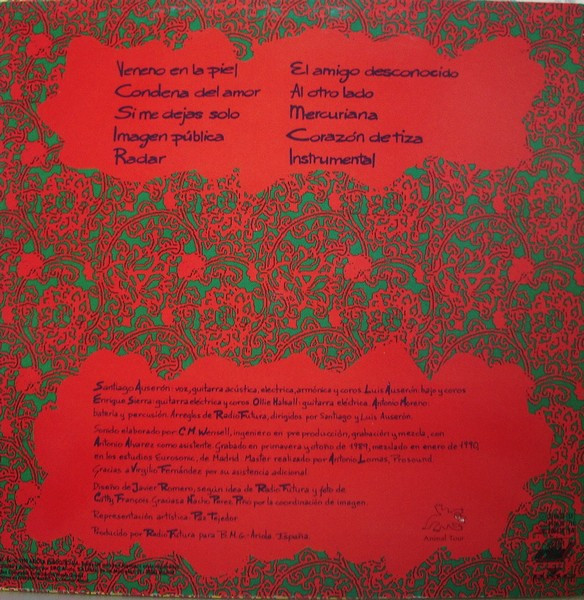 Veneno en la piel
Condena del amor
Si me dejas solo
Imagen pública
Radar
El amigo desconocido
Al otro lado
Mercuriana
Corazón de tiza
Instrumental
Santiago Auserón: voz, guitarra acústica, eléctrica, armónica y coros. Luis Auserón: bajo y coros
Enrique Sierra: guitarra eléctrica y coros. Ollie Halsall: guitarra eléctrica. Antonio Moreno:
batería y percusión. Arreglos de Radio Futura, dirigidos por Santiago y Luis Auserón.
Sonido elaborado por C.M. Wonsell, ingeniero en pre producción, grabación y mezcla, con
Antonio Álvarez como asistente. Grabado en primavera y otoño de 1989, mezclado en enero de 1990
en los estudios Eurosonic, de Madrid. Master realizado por Antonio Lomas, Prosound.
Gracias a Virgilio Fernández por su asistencia adicional.
Diseño de Javier Romero, según idea de Radio Futura y foto de
Catty François. Gracias a Nacho Pérez Pino por la coordinación de imagen.
Representación artística: Paz Tejedor.
Producido por Radio Futura para B.M.G.-Ariola España
Animal Tour